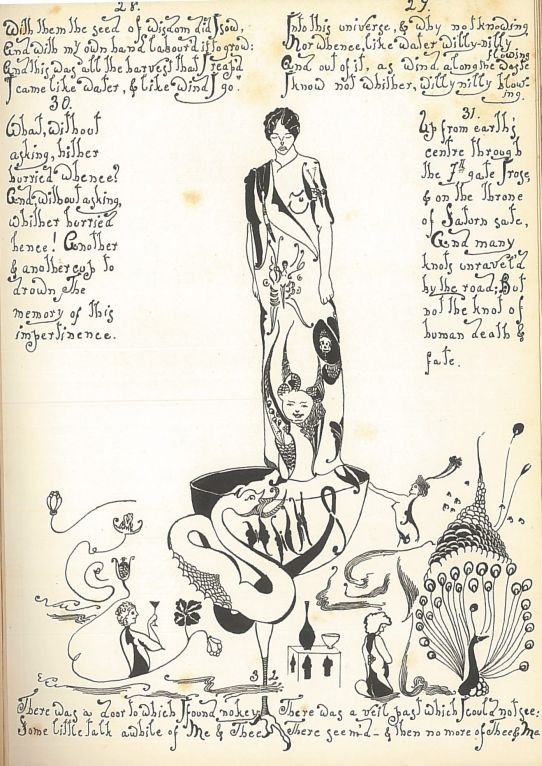 28.
With them the seed of Wisdom did I sow,
And with my own hand labour'd it to grow:
And this was all the harvest that I reap'd
I came like water, & like wind I go.
29.
Into this universe, & why not knowing
Nor whence, like water willy-nilly
flowing
And out of it, as wind along the waste
I know not whither, willy nilly blow-
ing.
30.
What, without
asking, hither
hurried whence?
And, without asking,
whither hurried
hence! Another
& another cup to
drown the
memory of this
impertinence.
31.
Up from earth's
centre through
the 7th gate I rose,
& on the throne
of Saturn sate,
And many
knots unravel'd
by the road; But
not the knot of
human death &
fate.
32
There was a door to which I found no key
There was a veil past which I could not see:
Some little talk awhile of Me & Thee
There seem'd - & then no more of Thee & Me